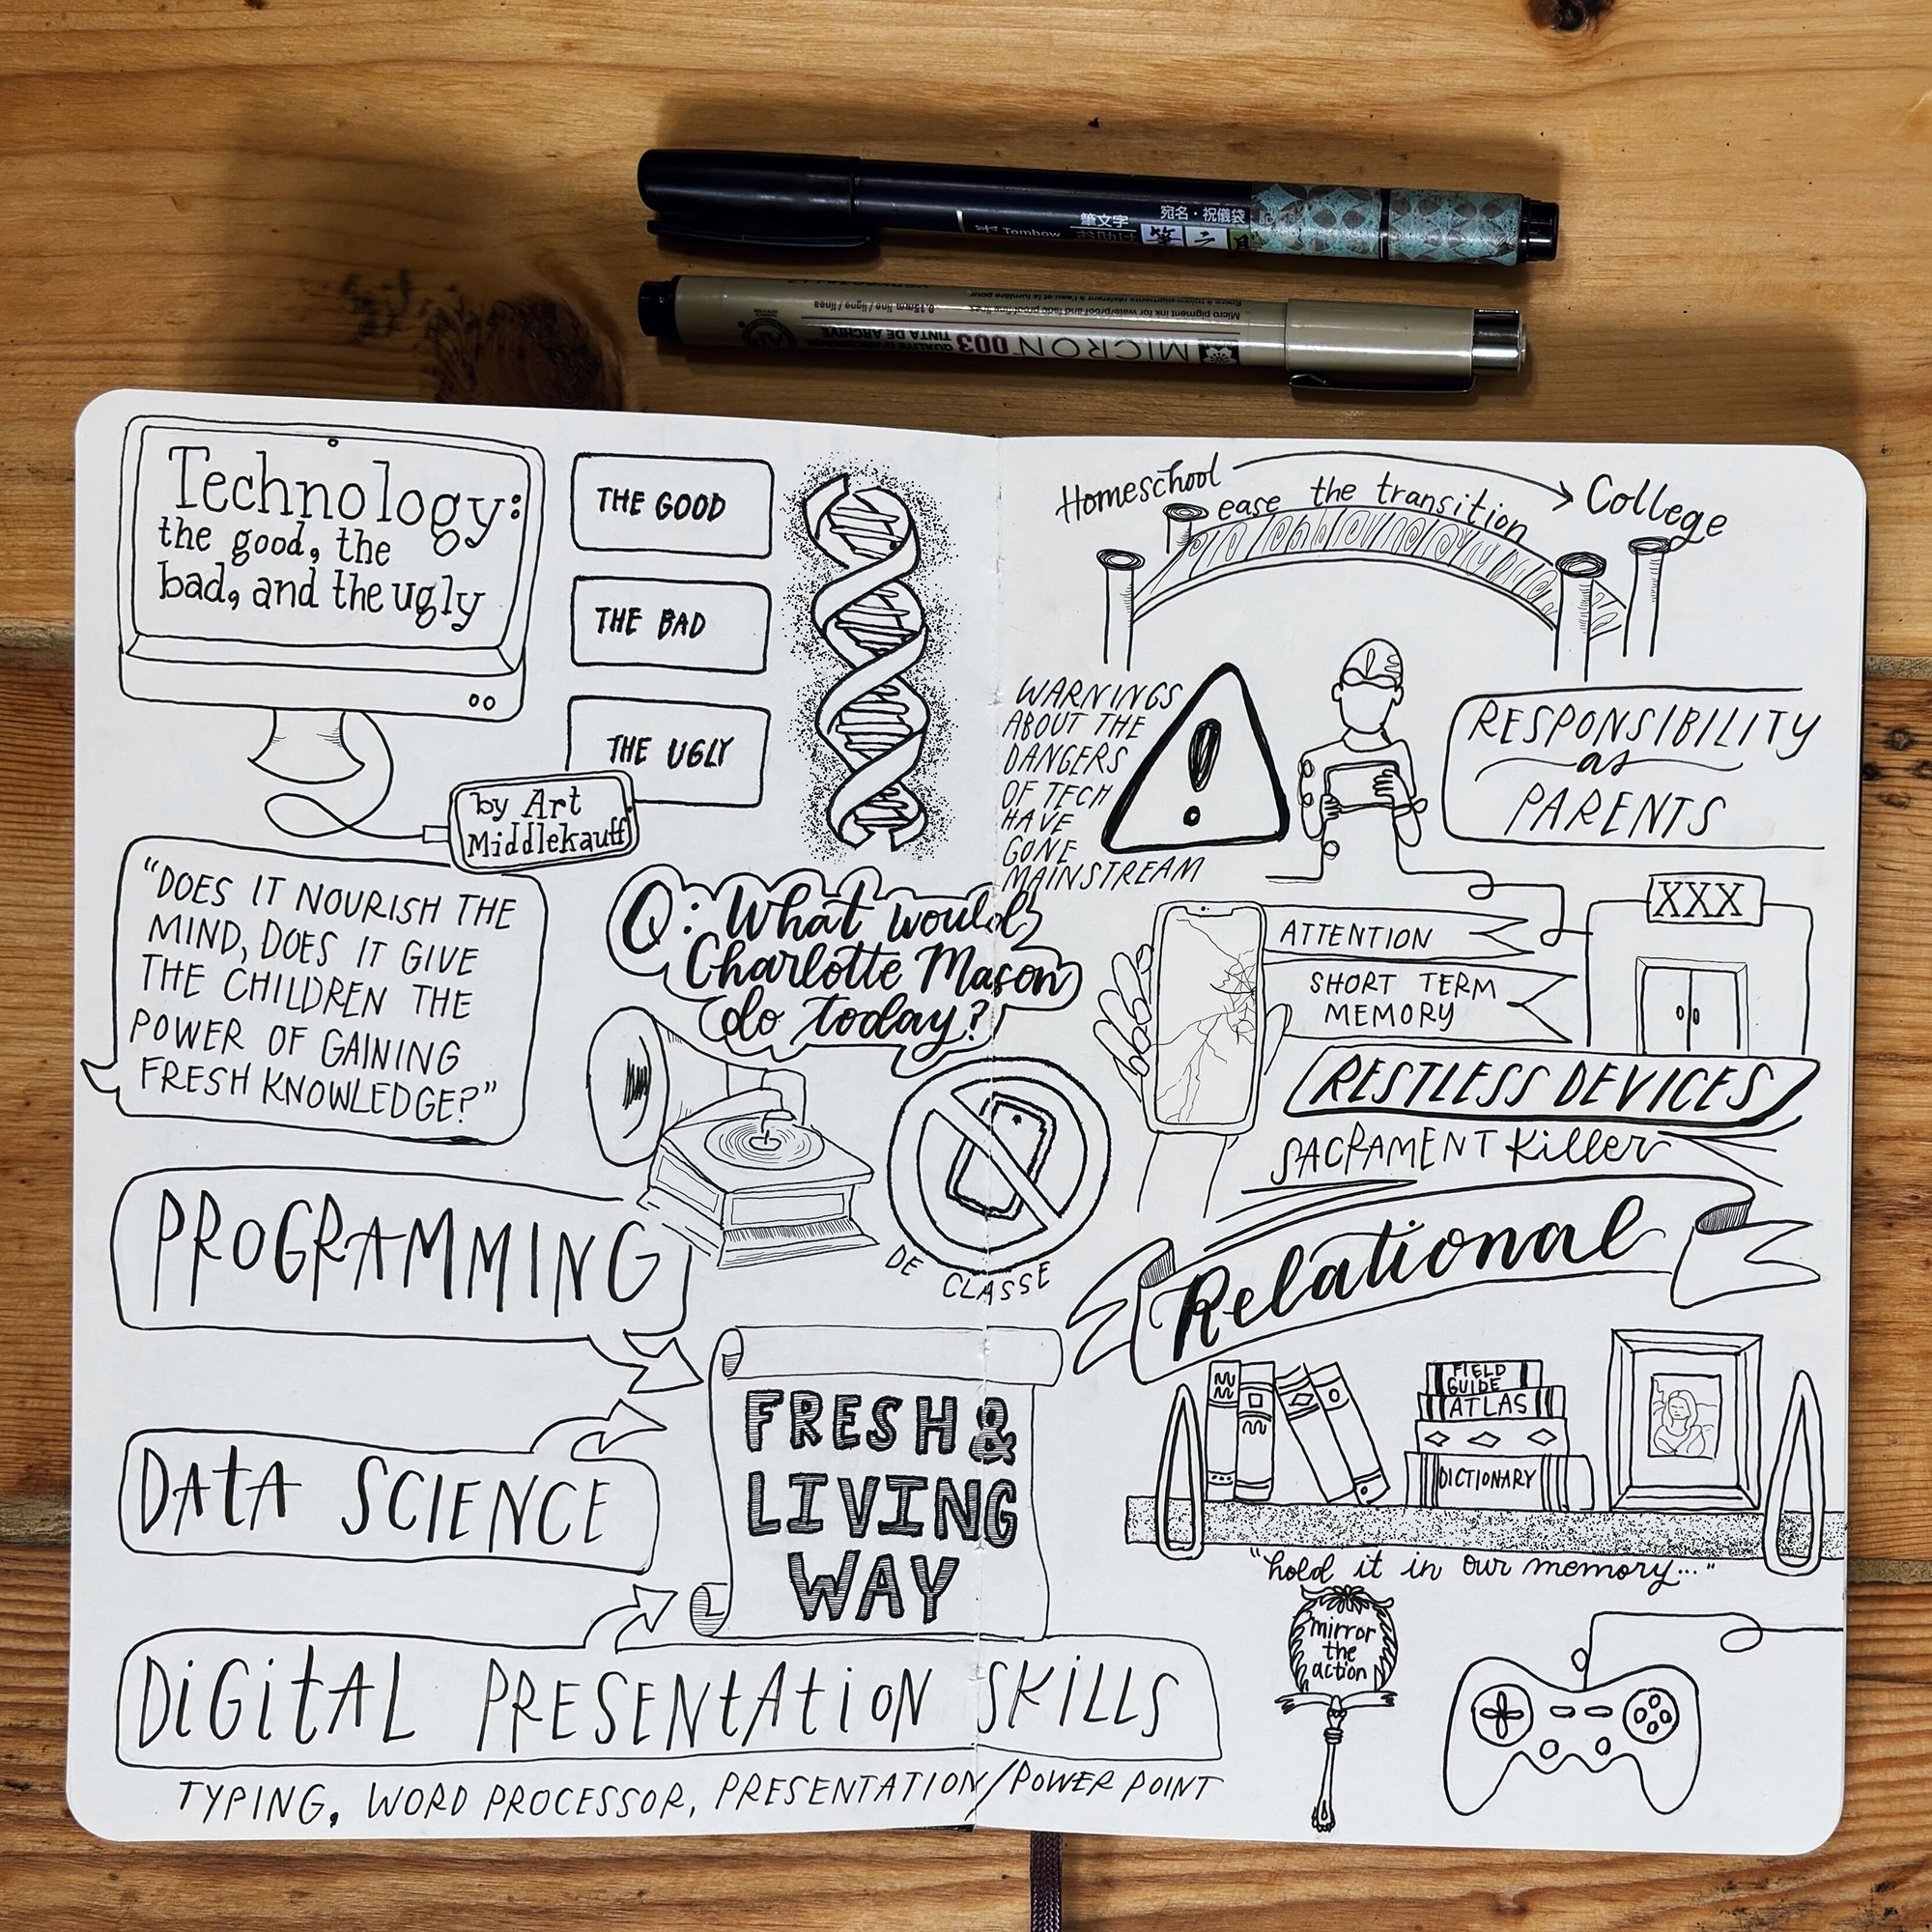 筆文字
宛名・祝儀袋
Tombow
Micro pigment ink for waterproof and fade proof fine lines
0.15mm line / ligne / línea
MICRON 003
QUALITÉ D'ARCHIVES
TINTA DE ARCHIVE
Technology:
the good, the
bad, and the ugly
by Art
Middlekauff
THE GOOD
THE BAD
THE UGLY
"DOES IT NOURISH THE
MIND, DOES IT GIVE
THE CHILDREN THE
POWER OF GAINING
FRESH KNOWLEDGE?"
Q: What would
Charlotte Mason
do today?
DE CLASSE
PROGRAMMING
DATA SCIENCE
DIGITAL PRESENTATION SKILLS
TYPING, WORD PROCESSOR, PRESENTATION/POWER POINT
FRESH &
LIVING
WAY
Homeschool
ease the transition
College
WARNINGS
ABOUT THE
DANGERS
OF TECH
HAVE
GONE
MAINSTREAM
RESPONSIBILITY
as
PARENTS
XXX
ATTENTION
SHORT TERM
MEMORY
RESTLESS DEVICES
SACRAMENT Killer
Relational
FIELD
GUIDE
ATLAS
DICTIONARY
"hold it in our memory..."
mirror
the
action